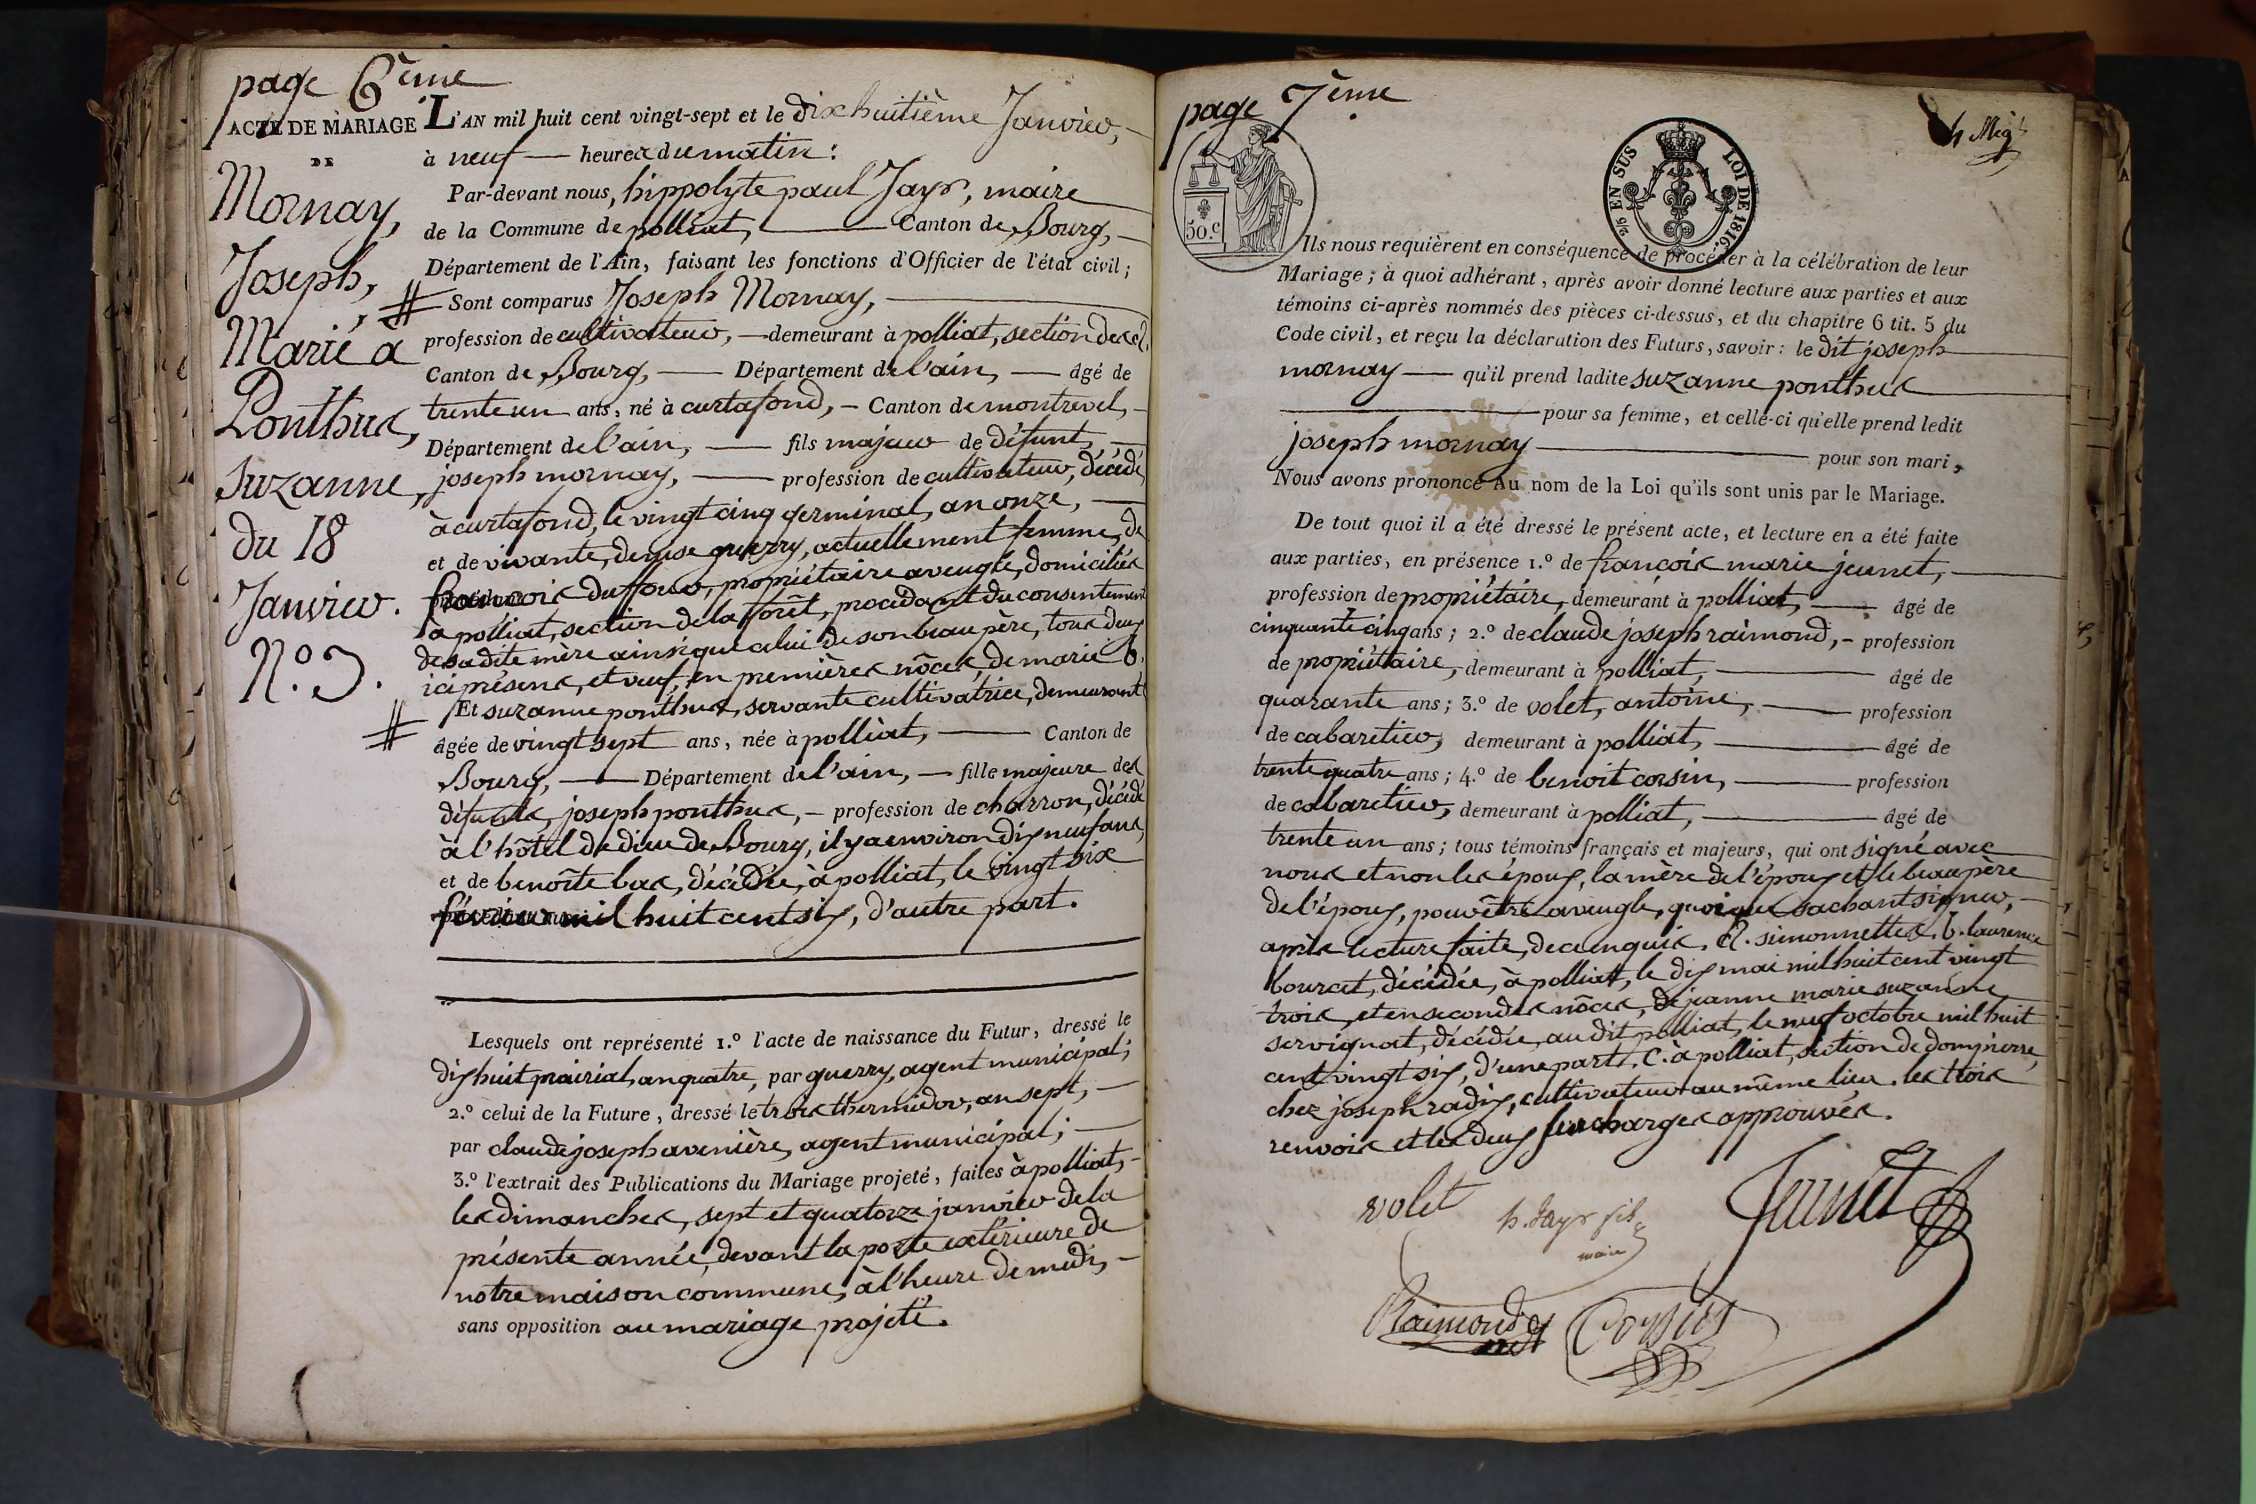 page 6ème
ACTE DE MARIAGE
DE
Mornay,
Joseph,
Marié à
Ponthus,
Suzanne,
du 18
Janvier.
N.o 3.
L'AN mil huit cent vingt-sept et le dix huitième Janvier,
à neuf heures du matin:
Par-devant nous, hippolyte paul Jayr, maire
de la Commune de polliat, Canton de Bourg,
Département de l'Ain, faisant les fonctions d'Officier de l'état civil;
# Sont comparus Joseph Mornay,
profession de cultivateur, demeurant à polliat, section de
Canton de Bourg, Département de l'ain, âgé de
trente un ans, né à curtafond, Canton de montrevel,
Département de l'ain, fils majeur de défunt,
joseph mornay, profession de cultivateur, décédé,
à curtafond, le vingt cinq germinal, an onze,
et de vivante, denise guerry, actuellement femme, de
francois duffour, propriétaire aveugle, domiciliés
à polliat, section de la forêt, procédant du consentement
de sa dite mère ainsi que celui de son beau père, tous deux
ici présens, et veuf, en premières nôces, de marie b.
# Et suzanne ponthus, servante cultivatrice, demeurant
âgée de vingt sept ans, née à polliat, Canton de
Bourg, Département de l'ain, fille majeure des
défunts, joseph ponthus, profession de charron, décédé
à l'hôtel de dieu de Bourg, il y a environ dix neuf ans,
et de benoîte bas, décédée, à polliat, le vingt six
février mil huit cent six, d'autre part.
Lesquels ont représenté 1.o l'acte de naissance du Futur, dressé le
dix huit prairial, an quatre, par guerry, agent municipal;
2.o celui de la Future, dressé le trois thermidor, an sept,
par claude joseph avenière, agent municipal;
3.o l'extrait des Publications du Mariage projeté, faites à polliat,
les dimanches, sept et quatorze janvier de la
présente année, devant la porte extérieure de
notre maison commune, à l'heure de midi,
sans opposition au mariage projeté.
page 7ème
50.c
25 EN SUS
LOI DE 1816.
Ils nous requièrent en conséquence de procéder à la célébration de leur
Mariage; à quoi adhérant, après avoir donné lecture aux parties et aux
témoins ci-après nommés des pièces ci-dessus, et du chapitre 6 tit. 5 du
Code civil, et reçu la déclaration des Futurs, savoir: le dit joseph
mornay qu'il prend ladite suzanne ponthus
pour sa femme, et celle-ci qu'elle prend ledit
joseph mornay pour son mari,
Nous avons prononcé Au nom de la Loi qu'ils sont unis par le Mariage.
De tout quoi il a été dressé le présent acte, et lecture en a été faite
aux parties, en présence 1.o de françois marie jeunet,
profession de propriétaire, demeurant à polliat, âgé de
cinquante cinq ans; 2.o de claude joseph raimond, profession
de propriétaire, demeurant à polliat, âgé de
quarante ans; 3.o de volet, antoine, profession
de cabaretier, demeurant à polliat, âgé de
trente quatre ans; 4.o de benoit corsin, profession
de cabaretier, demeurant à polliat, âgé de
trente un ans; tous témoins français et majeurs, qui ont signé avec
nous et non les époux, la mère de l'époux et le beau père
de l'époux, pour être aveugle, quoique sachant signer,
après lecture faite, de ce enquis. simonnettes. b. laurence
bourcet, décédée, à polliat, le dix mai mil huit cent vingt
trois, et en secondes nôces, de jeanne marie suzanne
servignat, décédée, au dit polliat, le neuf octobre mil huit
cent vingt six, d'une part. C. à polliat, section de dompierre,
chez joseph radix, cultivateur au même lieu. les trois
renvois et les deux surcharges approuvés.
volet h. Jayr fils Jeunet
maire
Raimond Corsin